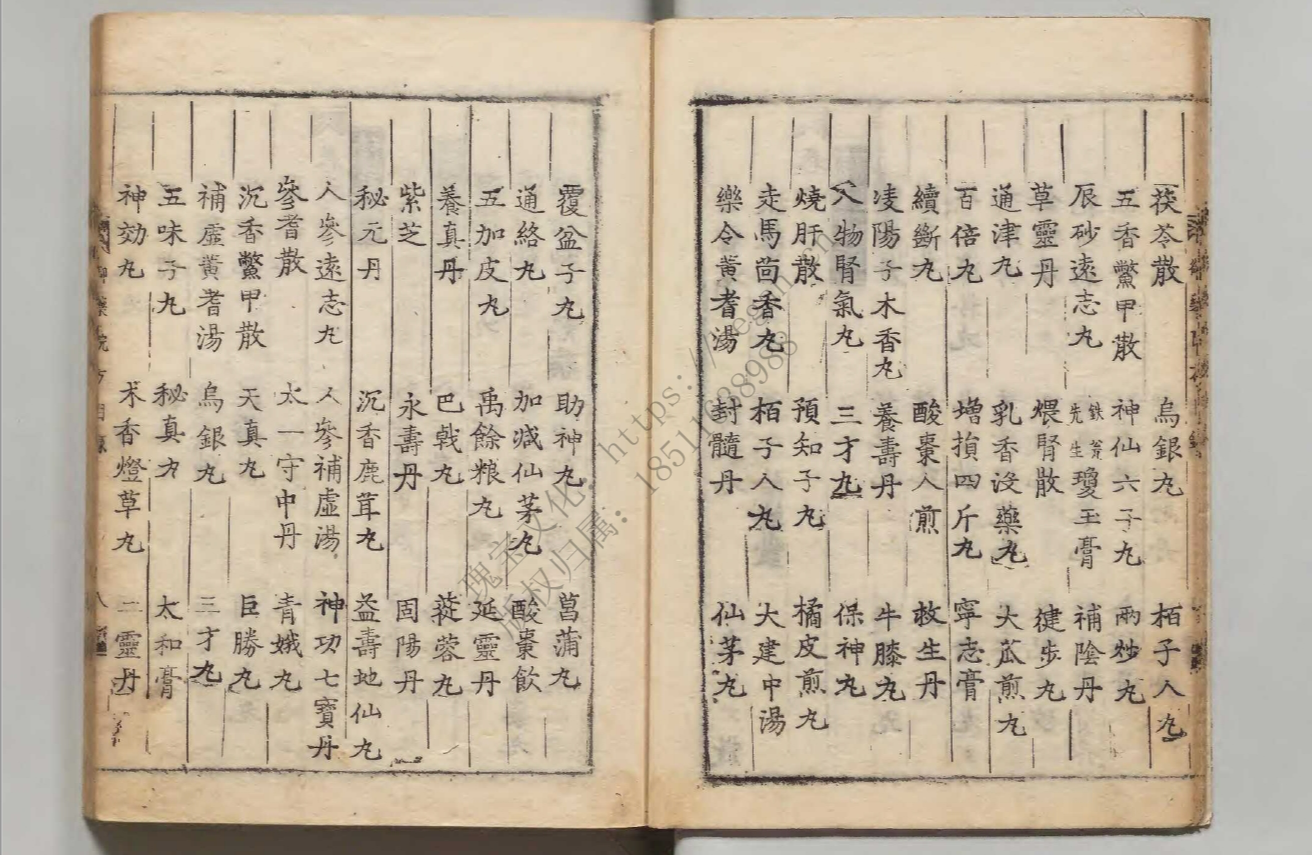 茯苓散 烏銀丸 栢子人丸
五香鱉甲散 神仙六子丸 兩玅丸
辰砂遠志丸 鉄瓮先生瓊玉膏 補陰丹
草靈丹 煨腎散 健步丸
通津丸 乳香沒藥丸 大苽煎丸
百倍丸 增損四斤丸 寧志膏
續斷丸 酸棗人煎 救生丹
凌陽子木香丸 養壽丹 牛膝丸
八物腎氣丸 三才丸 保神丸
燒肝散 預知子丸 橘皮煎丸
走馬茴香丸 栢子人丸 大建中湯
樂令黃耆湯 封髓丹 仙茅丸
覆盆子丸 助神丸 菖蒲丸
通絡丸 加减仙茅丸 酸棗飲
五加皮丸 禹餘粮丸 延靈丹
養真丹 巴戟丸 蓯蓉丸
紫芝 永壽丹 固陽丹
秘元丹 沉香鹿茸丸 益壽地仙丸
人參遠志丸 人參補虛湯 神功七寶丹
參耆散 太一守中丹 青娥丸
沉香鱉甲散 天真丸 巨勝丸
補虛黃耆湯 烏銀丸 三才丸
五味子丸 秘真丸 太和膏
神効丸 木香燈草丸 二靈丹
瑰宝文化 https://
版权归属：18511638988